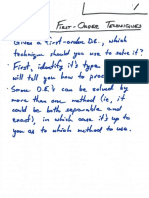 First-Order Techniques
• Given a first-order D.E., which
technique should you use to solve it?
• First, identify it's type. This
will tell you how to proceed.
• Some D.E.'s can be solved by
more than one method (ie, it
could be both separable and
exact), in which case it's up to
you as to which method to use.